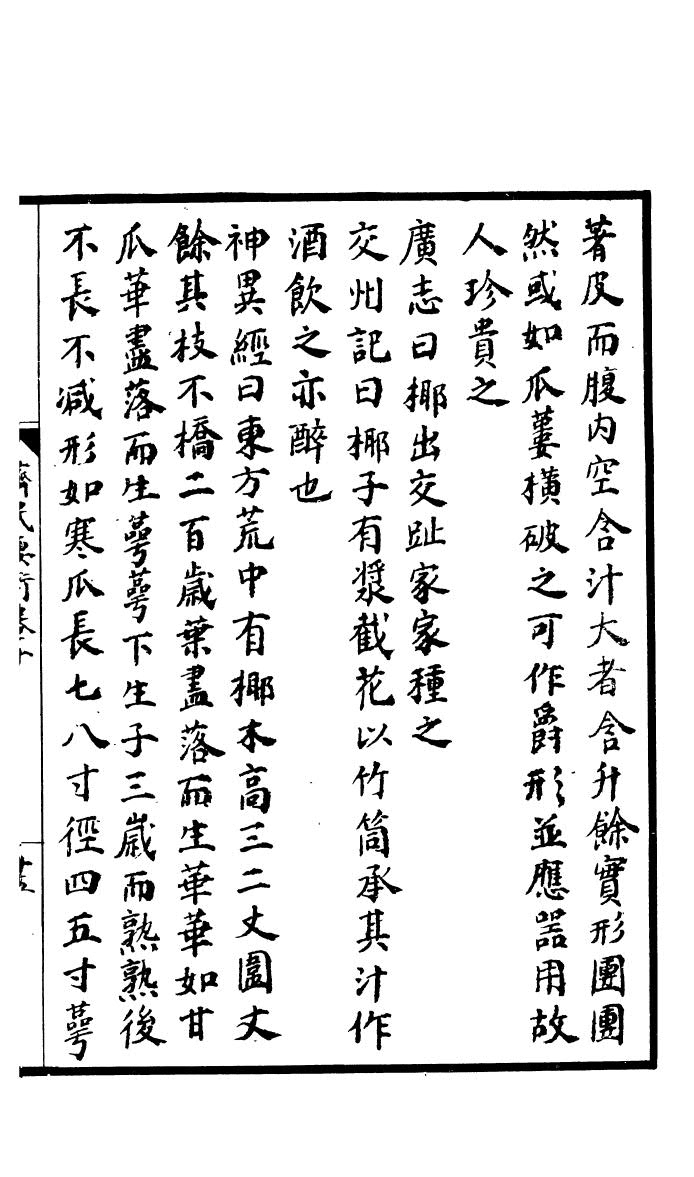 著皮而腹内空含汁大者含升餘實形團團
然或如瓜蔞橫破之可作爵形並應器用故
人珍貴之
廣志曰椰出交趾家家種之
交州記曰椰子有漿截花以竹筒承其汁作
酒飲之亦醉也
神異經曰東方荒中有椰木高三二丈圍丈
餘其枝不橋二百歲葉盡落而生華華如甘
瓜華盡落而生萼萼下生子三歲而熟熟後
不長不減形如寒瓜長七八寸徑四五寸萼
齊民要術卷十